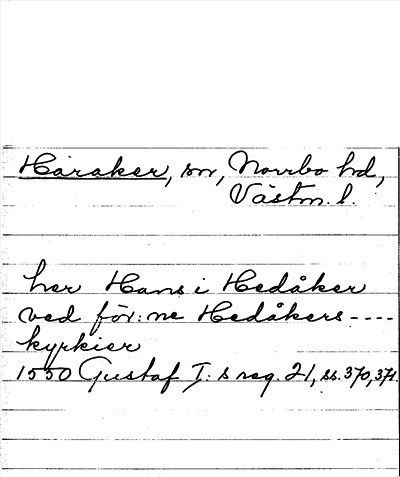 Haraker, sn, Norrbo hd,
Västm. l.
her Hans i Hedåker
ved för:ne Hedåkers ----
kyrkier
1550 Gustaf I: s reg. 21, ss. 370, 371.